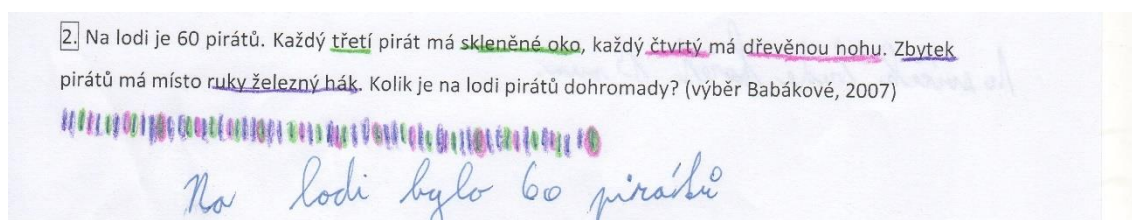 2. Na lodi je 60 pirátů. Každý třetí pirát má skleněné oko, každý čtvrtý má dřevěnou nohu. Zbytek
pirátů má místo ruky železný hák. Kolik je na lodi pirátů dohromady? (výběr Babákové, 2007)
Na lodi bylo 60 pirátů